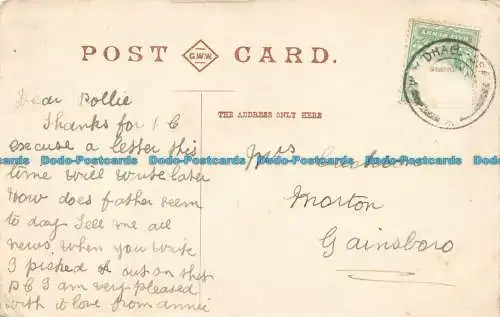 POST CARD.
G.W.W.
THE ADDRESS ONLY HERE
Dear Pollie
Thanks for P C
excuse a letter this
time will write later
How does father seem
to day Tell me all
news when you write
I picked out on this
P C I am very pleased
with it love from annie
Mrs
Morton
Gainsboro
Dodo-Postcards Dodo-Postcards Dodo-Postcards Dodo-Postcards Dodo-Postcards